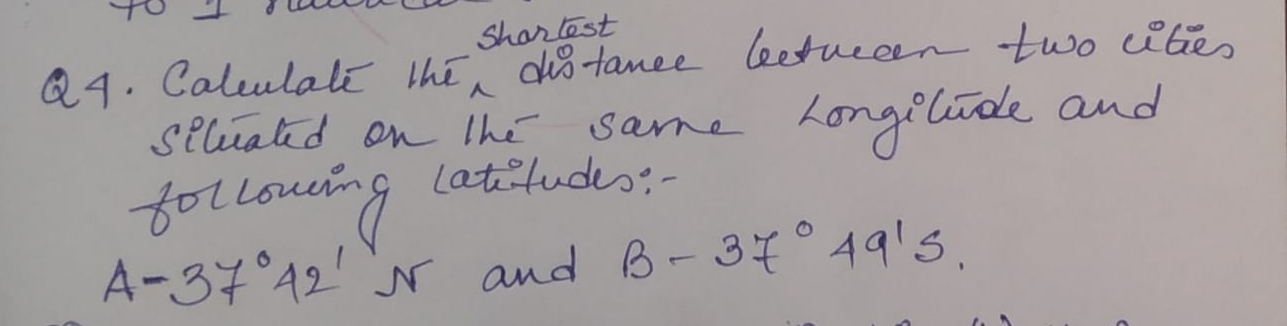 to 1
Q4. Calculate the shortest distance between two cities
situated on the same Longitude and
following latitudes:-
A-37°42' N and B-37°49's.